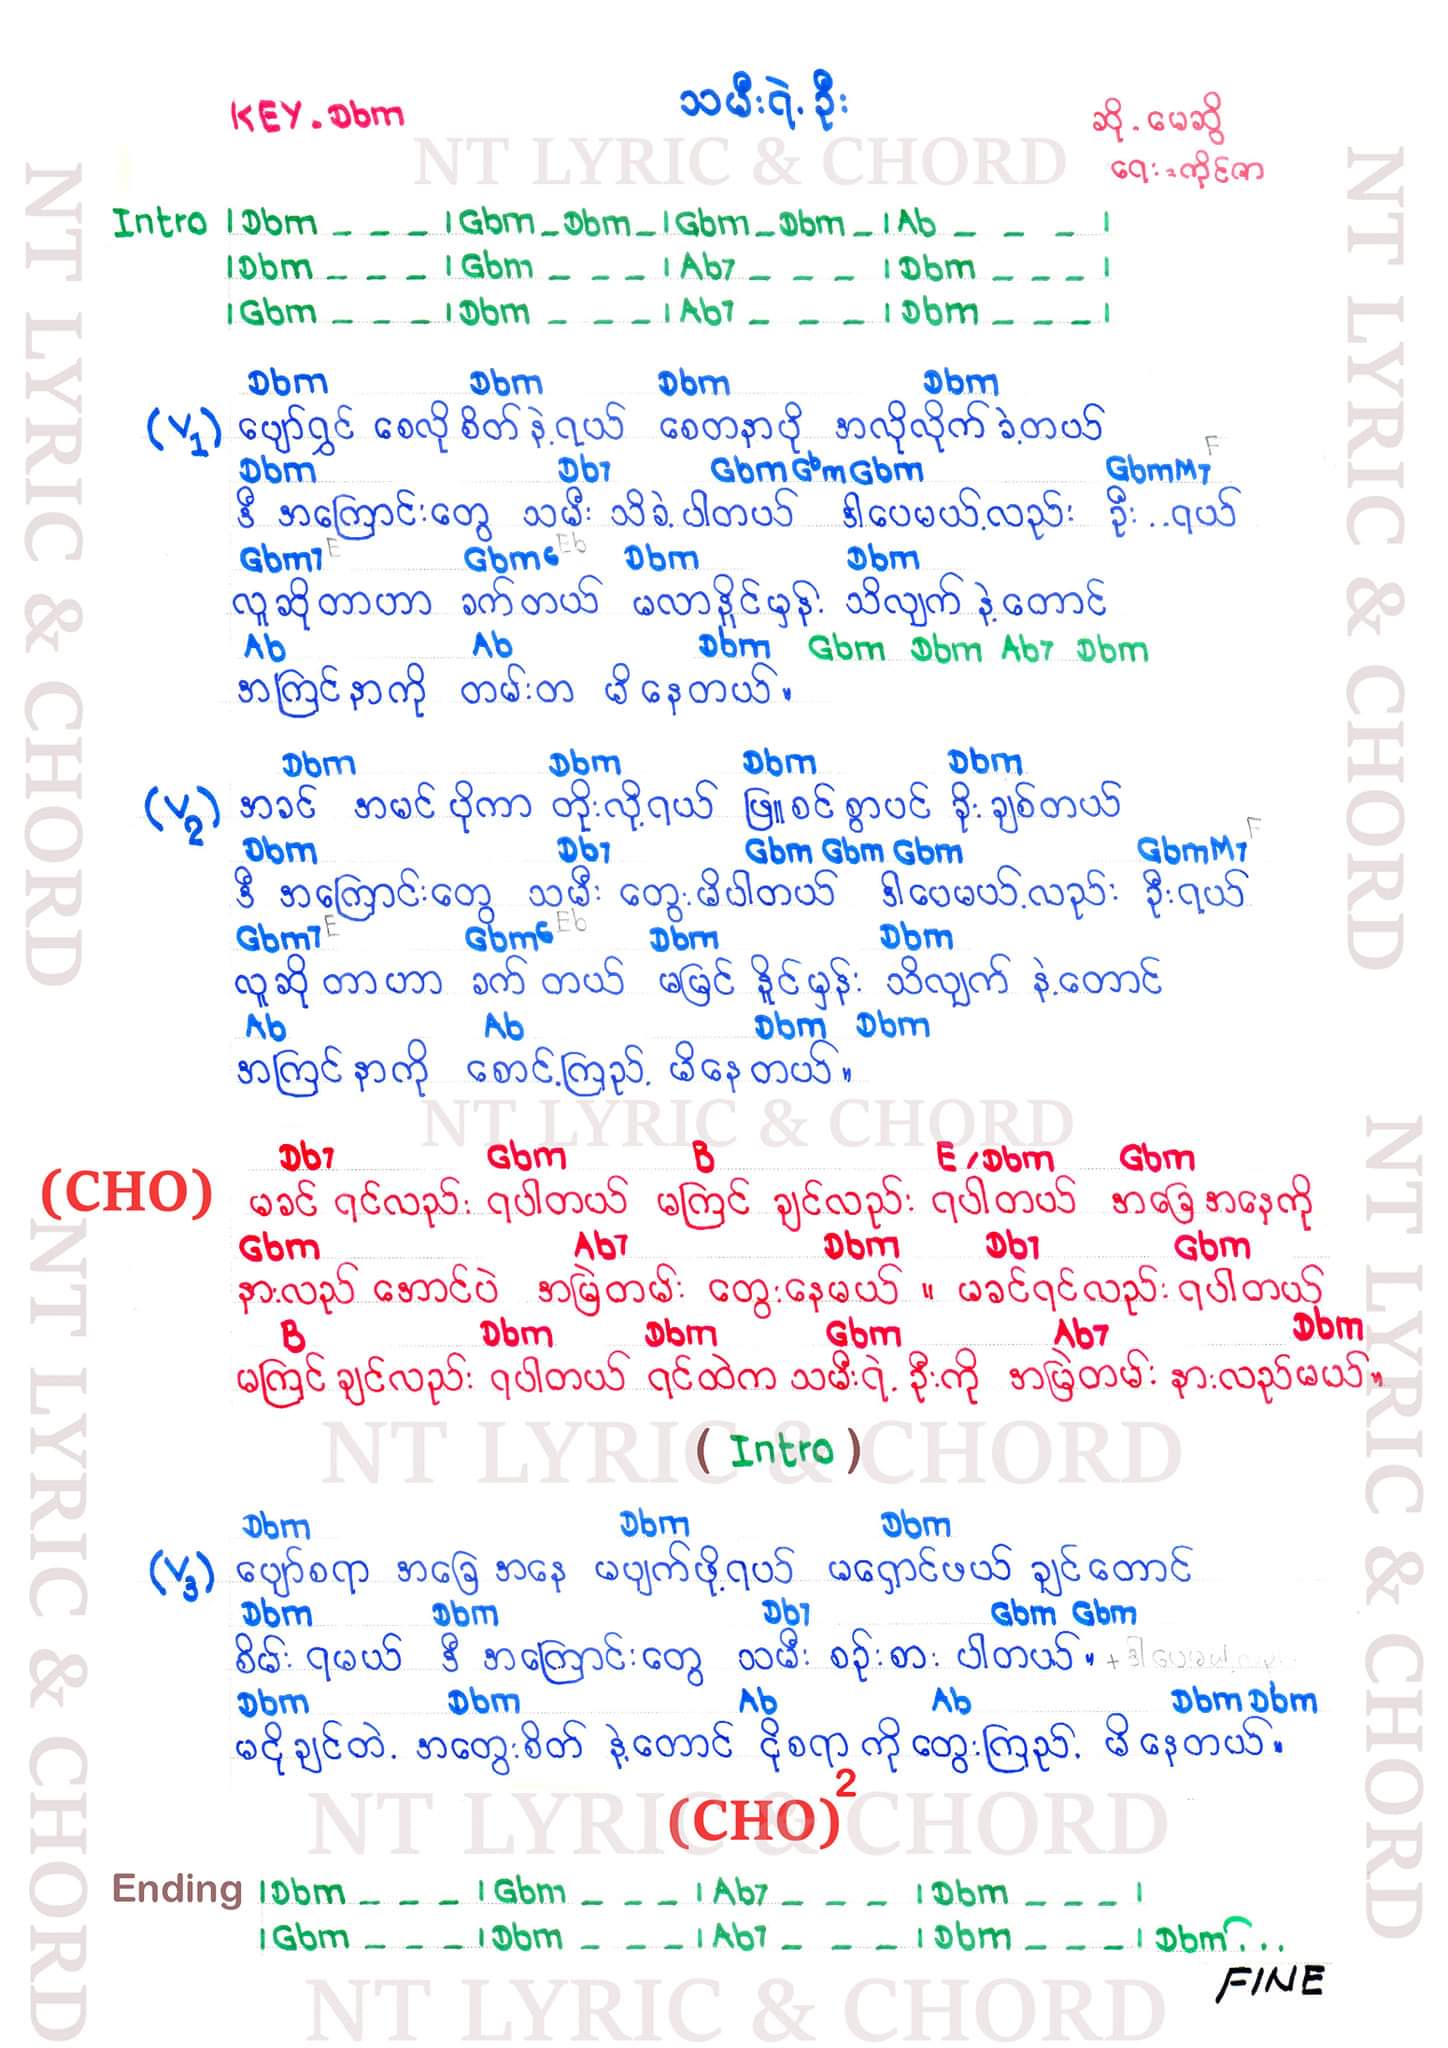 သမီးရဲ့ဦး
KEY. Dbm
ဆို - မေဆွိ
ရေး = ကိုင်ဇာ
NT LYRIC & CHORD
Intro |Dbm _ _ _ |Gbm _ Dbm _ |Gbm _ Dbm _ |Ab _ _ _ |
|Dbm _ _ _ |Gbm _ _ _ |Ab7 _ _ _ |Dbm _ _ _ |
|Gbm _ _ _ |Dbm _ _ _ |Ab7 _ _ _ |Dbm _ _ _ |
Dbm Dbm Dbm Dbm
(V1) ပျော်ရွှင် စေလိုစိတ်နဲ့ရယ် စေတနာပို အလိုလိုက်ခဲ့တယ်
Dbm Db7 Gbm Gbm Gbm GbmM7 F
ဒီ အကြောင်းတွေ သမီး သိခဲ့ပါတယ် ဒါပေမယ့်လည်း ဦး..ရယ်
Gbm7 E Gbm6 Eb Dbm Dbm
လူဆိုတာဟာ ခက်တယ် မလာနိုင်မှန်း သိလျှက်နဲ့တောင်
Ab Ab Dbm Gbm Dbm Ab7 Dbm
အကြင်နာကို တမ်းတ မိနေတယ်။
Dbm Dbm Dbm Dbm
(V2) အခင် အမင် ပိုကာ တိုးလို့ရယ် ဖြူစင်စွာပင် ခိုးချစ်တယ်
Dbm Db7 Gbm Gbm Gbm GbmM7 F
ဒီ အကြောင်းတွေ သမီး တွေးမိပါတယ် ဒါပေမယ့်လည်း ဦးရယ်
Gbm7 E Gbm6 Eb Dbm Dbm
လူဆိုတာဟာ ခက်တယ် မမြင်နိုင်မှန်း သိလျှက်နဲ့တောင်
Ab Ab Dbm Dbm
အကြင်နာကို စောင့်ကြည့် မိနေတယ်။
NT LYRIC & CHORD
Db7 Gbm B E/Dbm Gbm
(CHO) မခင်ရင်လည်း ရပါတယ် မကြင်ချင်လည်း ရပါတယ် အခြေအနေကို
Gbm Ab7 Dbm Db7 Gbm
နားလည်အောင်ပဲ အမြဲတမ်း တွေးနေမယ် ။ မခင်ရင်လည်း ရပါတယ်
B Dbm Dbm Gbm Ab7 Dbm
မကြင်ချင်လည်း ရပါတယ် ရင်ထဲက သမီးရဲ့ဦးကို အမြဲတမ်း နားလည်မယ်။
NT LYRIC & CHORD
(Intro)
Dbm Dbm Dbm
(V3) ပျော်စရာ အခြေအနေ မပျက်ဖို့ရယ် မရှောင်ဖယ်ချင်တောင်
Dbm Dbm Db7 Gbm Gbm
စိမ်းရမယ် ဒီ အကြောင်းတွေ သမီး စဉ်းစားပါတယ်။
Dbm Dbm Ab Ab Dbm Dbm
မငိုချင်တဲ့ အတွေးစိတ်နဲ့တောင် ငိုစရာကို တွေးကြည့် မိနေတယ်။
NT LYRIC & CHORD
(CHO)2
Ending |Dbm _ _ _ |Gbm _ _ _ |Ab7 _ _ _ |Dbm _ _ _ |
|Gbm _ _ _ |Dbm _ _ _ |Ab7 _ _ _ |Dbm _ _ _ | Dbm...
FINE
NT LYRIC & CHORD
NT LYRIC & CHORD
NT LYRIC & CHORD
NT LYRIC & CHORD
NT LYRIC & CHORD